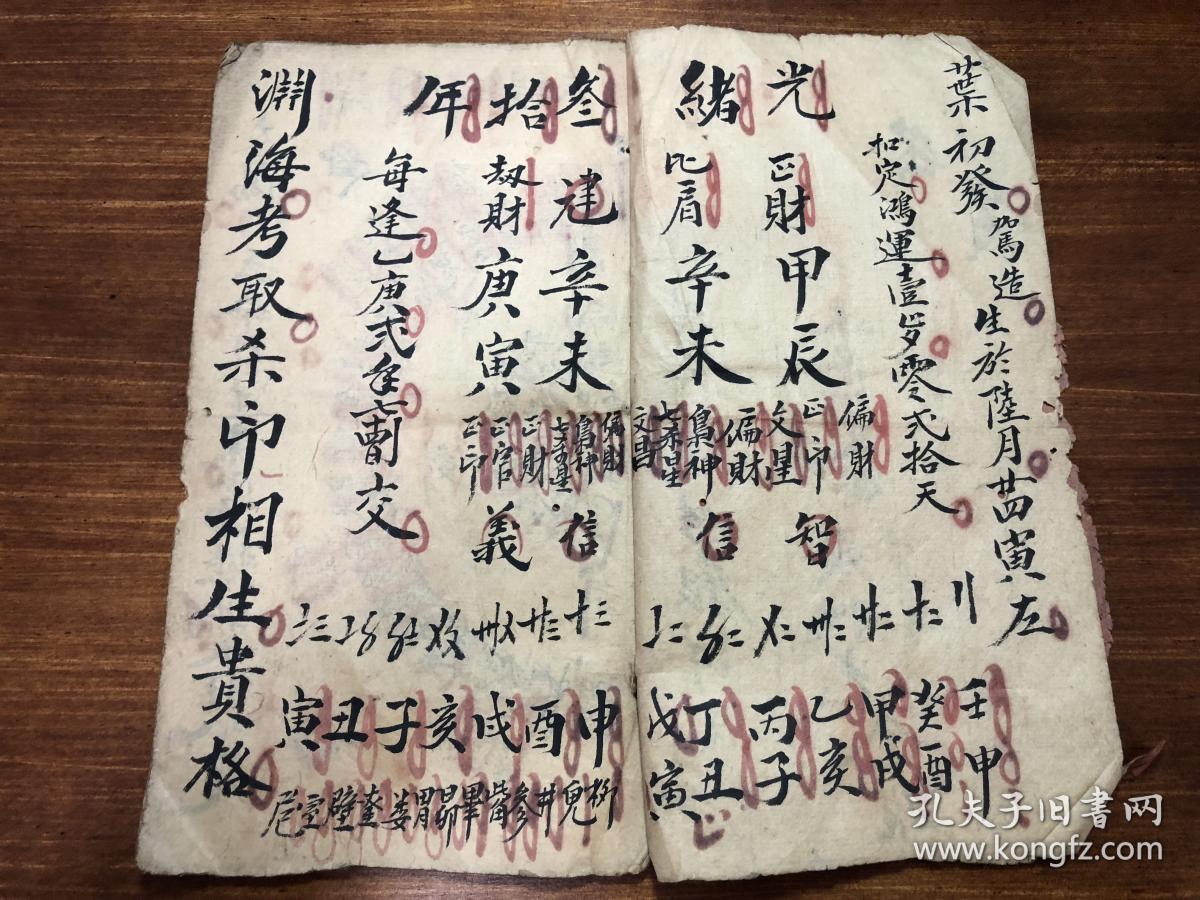 葉初發 駕造 生於陸月廿四寅左
扣定鴻運壹岁零弍拾天
光緒叁拾年
正財 甲辰
偏財
正印
文星
智
比肩 辛未
偏財
梟神
七杀星
文昌
信
建 辛未
偏財
梟神
七杀星
信
劫財 庚寅
正財
正官
正印
義
每逢乙庚弍年七䦉交
淵海考取杀印相生貴格
壬申 癸酉 甲戌 乙亥 丙子 丁丑 戊寅
申 酉 戌 亥 子 丑 寅
柳 鬼 井 參 觜 畢 昴 胃 婁 奎 壁 室 危
孔夫子旧书网
www.kongfz.com